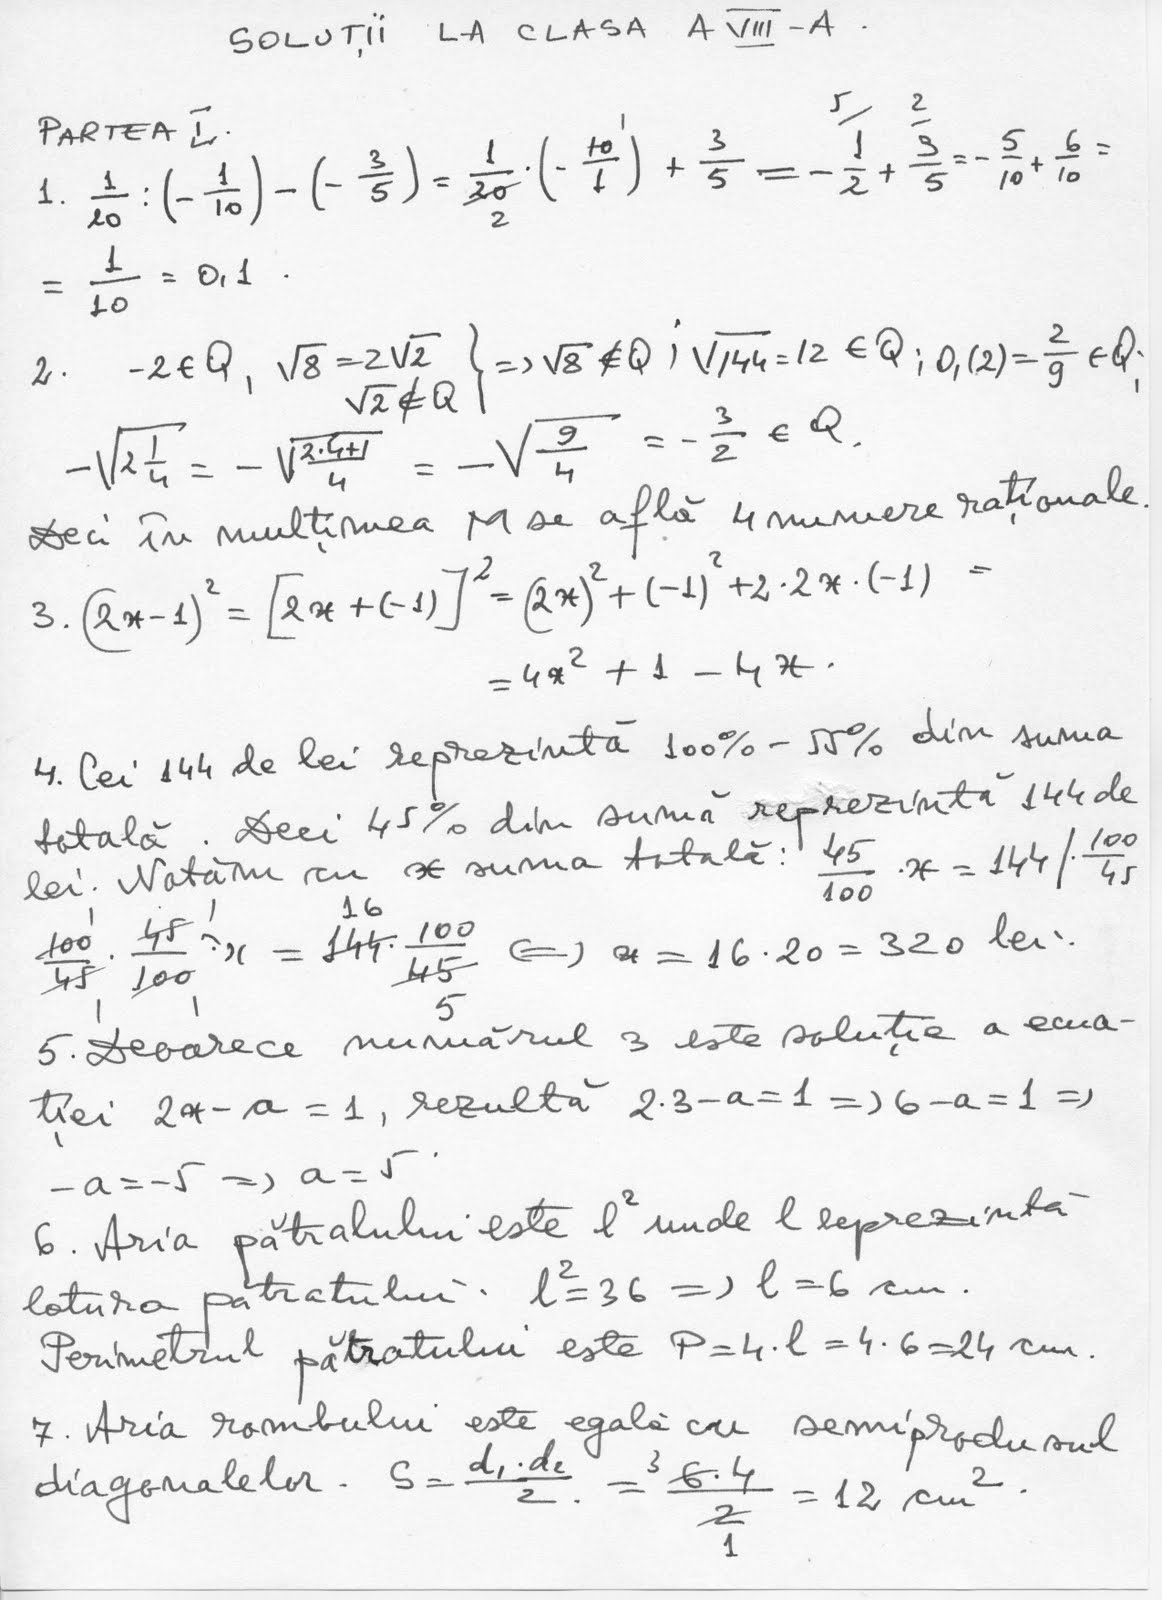 SOLUȚII LA CLASA A VIII-A.
PARTEA I.
1. 1/20 : (-1/10) - (-3/5) = 1/20 · (-10/1) + 3/5 = -1/2 + 3/5 = -5/10 + 6/10 =
= 1/10 = 0,1.
2. -2 ∈ Q, √8 = 2√2 } => √8 ∉ Q ; √144 = 12 ∈ Q ; 0,(2) = 2/9 ∈ Q;
√2 ∉ Q
-√(2 1/4) = -√((2·4+1)/4) = -√(9/4) = -3/2 ∈ Q.
Deci în mulțimea M se află 4 numere raționale.
3. (2x-1)² = [2x+(-1)]² = (2x)² + (-1)² + 2·2x·(-1) =
= 4x² + 1 - 4x.
4. Cei 144 de lei reprezintă 100% - 55% din suma
totală. Deci 45% din sumă reprezintă 144 de
lei. Notăm cu x suma totală: 45/100 · x = 144 / · 100/45
100/45 · 45/100 · x = 144 · 100/45 <=> x = 16·20 = 320 lei.
5. Deoarece numărul 3 este soluție a ecua-
ției 2x - a = 1, rezultă 2·3 - a = 1 => 6 - a = 1 =>
-a = -5 => a = 5.
6. Aria pătralului este l² unde l reprezintă
latura pătratului. l² = 36 => l = 6 cm.
Perimetrul pătratului este P = 4·l = 4·6 = 24 cm.
7. Aria rombului este egală cu semiprodusul
diagonalelor. S = d₁·d₂/2. = 6·4/2 = 12 cm².